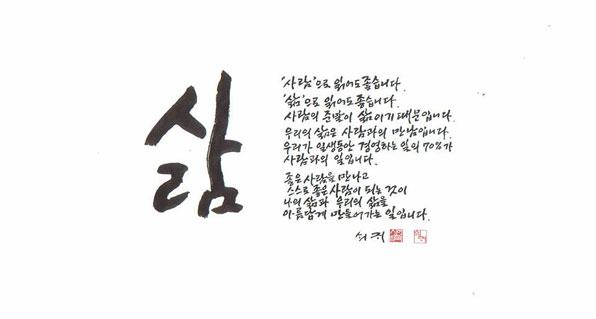 삶
"사람"으로 읽어도 좋습니다.
"삶"으로 읽어도 좋습니다.
사람의 준말이 삶이기 때문입니다.
우리의 삶은 사람과의 만남입니다.
우리가 일생동안 경영하는 일의 70%가
사람과의 일입니다.
좋은 사람을 만나고
스스로 좋은 사람이 되는 것이
나의 삶과 우리의 삶을
아름답게 만들어가는 일입니다.
쇠귀